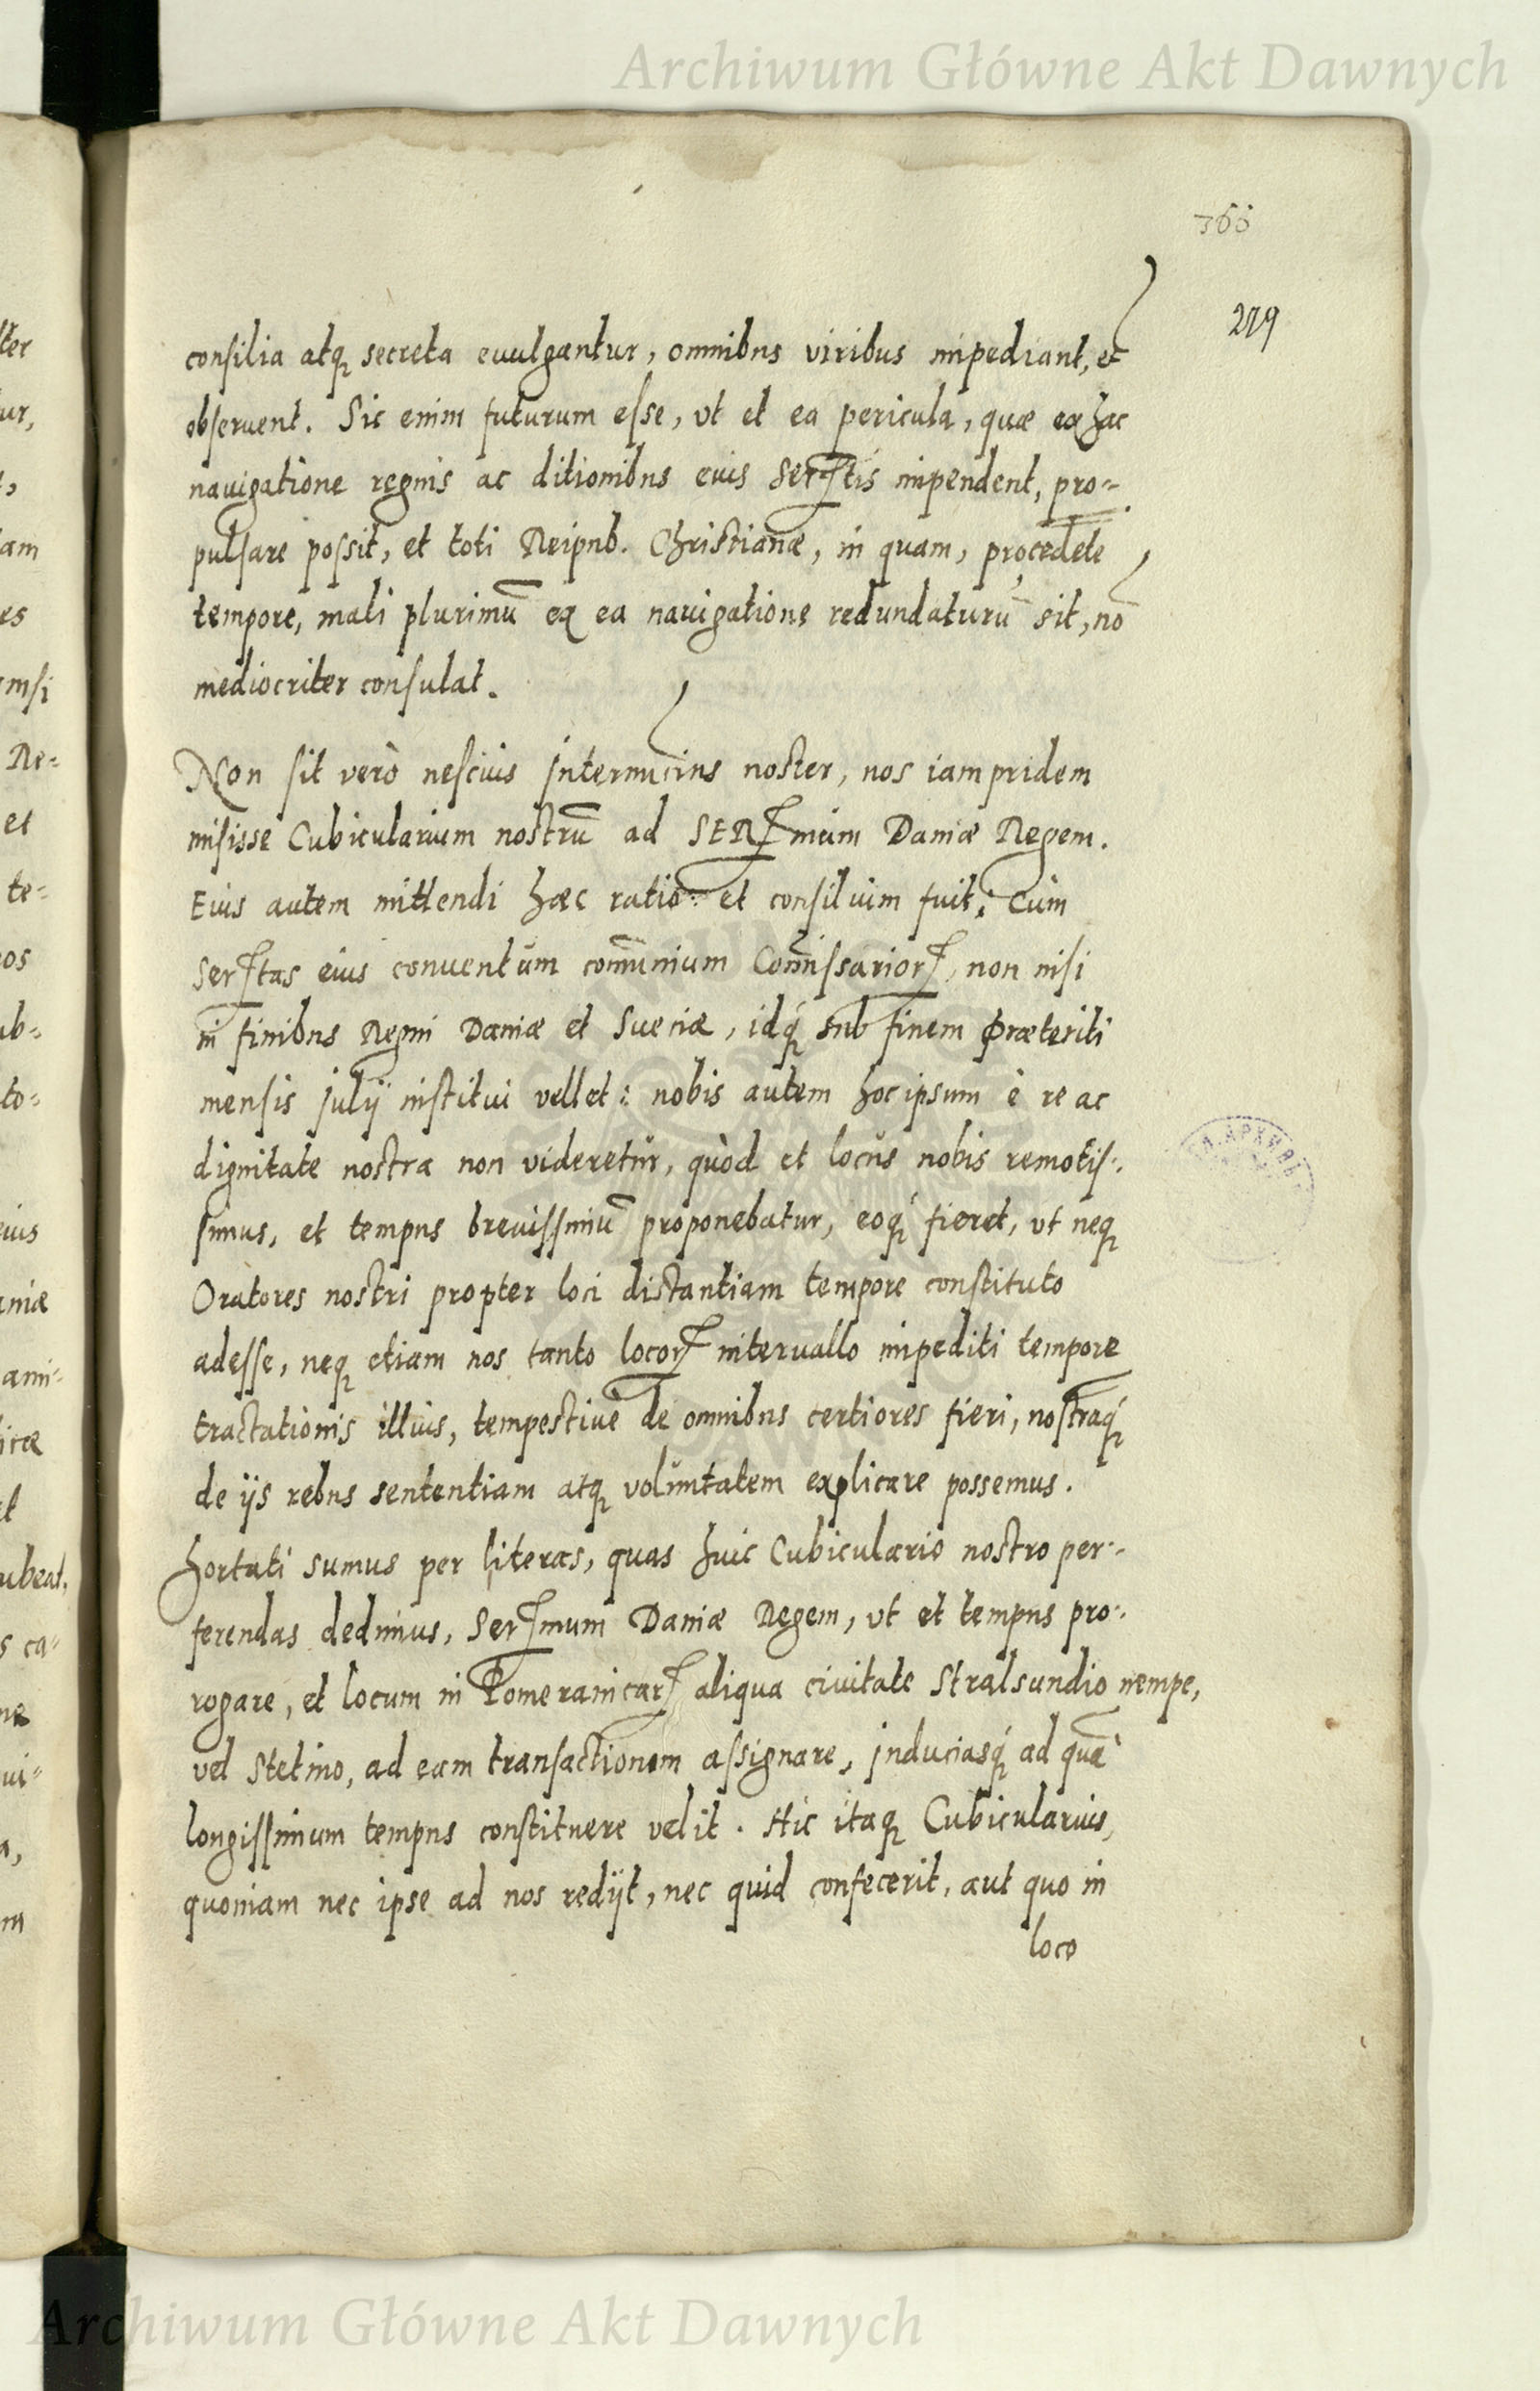 Archiwum Główne Akt Dawnych
366
279
consilia atq; secreta euulgantur, omnibus viribus impediant, et
obseruent. Sic enim futurum esse, vt et ea pericula, quæ ex hac
nauigatione regnis ac ditionibus eius Serꝫtis impendent, pro-
pulsare possit, et toti Reipub. Christianæ, in quam, procedēte
tempore, mali plurimū ex ea nauigatione redundaturū sit, nō
mediocriter consulat.
Non sit verò nescius internuncius noster, nos iam pridem
misisse Cubicularium nostrū ad SERꝫmum Daniæ Regem.
Eius autem mittendi hæc ratio et consilium fuit; Cùm
Serꝫtas eius conuentum com̄unium Com̄issariorꝫ, non nisi
in finibus Regni Daniæ et Sueciæ, idq́; sub finem præteriti
mensis Julij institui vellet: nobis autem hoc ipsum è re ac
dignitate nostra non videretur, quòd et locus nobis remotis-
simus, et tempus breuissimū proponebatur, eoq́; fieret, vt neq;
Oratores nostri propter loci distantiam tempore constituto
adesse, neq; etiam nos tanto locorꝫ interuallo impediti tempore
tractationis illius, tempestiuè de omnibus certiores fieri, nostraq́;
de ijs rebus sententiam atq; voluntatem explicare possemus.
Hortati sumus per literas, quas huic Cubiculario nostro per-
ferendas dedimus, Serꝫmum Daniæ Regem, vt et tempus pro-
rogare, et locum in Pomeranicarꝫ aliqua ciuitate Stralsundio nempe,
vel Stetino, ad eam transactionem assignare, induciasq́; ad quā
longissimum tempus constituere velit. Hic itaq; Cubicularius,
quoniam nec ipse ad nos redijt, nec quid confecerit, aut quo in
loco
Archiwum Główne Akt Dawnych